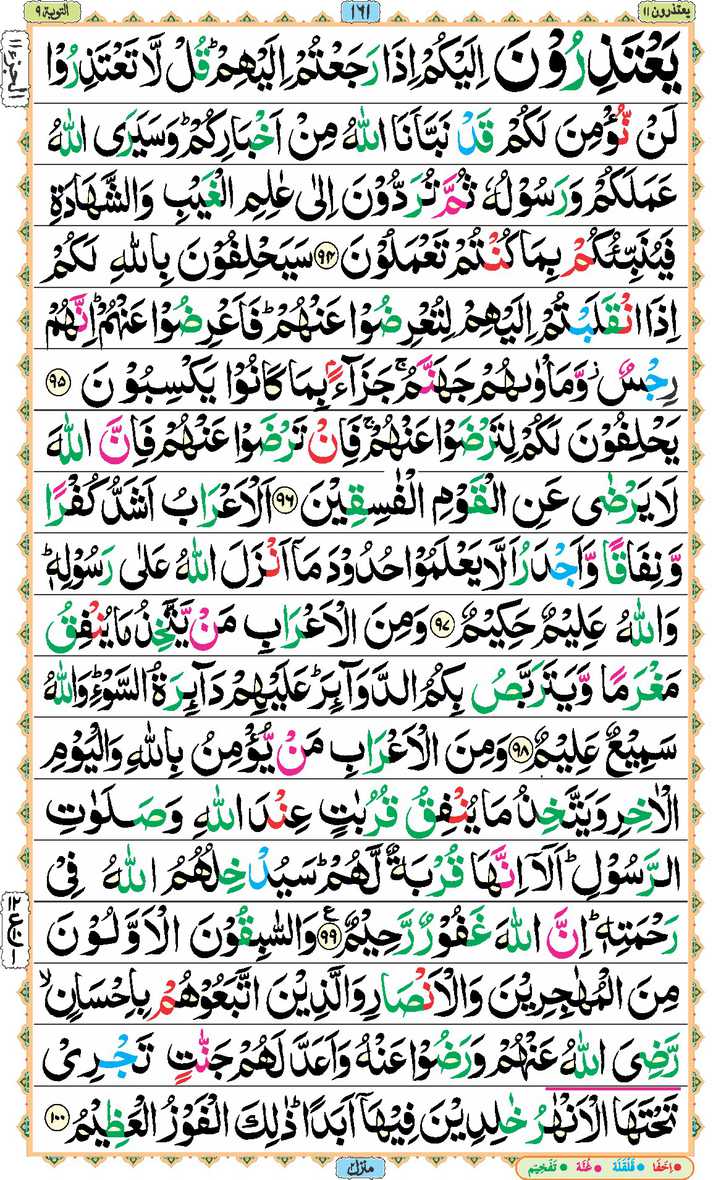 يعتذرون ١١
١٦١
التوبة ٩
يَعْتَذِرُوْنَ اِلَيْكُمْ اِذَا رَجَعْتُمْ اِلَيْهِمْ ؕ قُلْ لَّا تَعْتَذِرُوْا
لَنْ نُّؤْمِنَ لَكُمْ قَدْ نَبَّاَنَا اللّٰهُ مِنْ اَخْبَارِكُمْ ؕ وَسَيَرَى اللّٰهُ
عَمَلَكُمْ وَرَسُوْلُهٗ ثُمَّ تُرَدُّوْنَ اِلٰى عٰلِمِ الْغَيْبِ وَالشَّهَادَةِ
فَيُنَبِّئُكُمْ بِمَا كُنْتُمْ تَعْمَلُوْنَ ﴿۹۴﴾ سَيَحْلِفُوْنَ بِاللّٰهِ لَكُمْ
اِذَا انْقَلَبْتُمْ اِلَيْهِمْ لِتُعْرِضُوْا عَنْهُمْ ؕ فَاَعْرِضُوْا عَنْهُمْ ؕ اِنَّهُمْ
رِجْسٌ ؗ وَّمَاْوٰىهُمْ جَهَنَّمُ ۚ جَزَآءًۢ بِمَا كَانُوْا يَكْسِبُوْنَ ﴿۹۵﴾
يَحْلِفُوْنَ لَكُمْ لِتَرْضَوْا عَنْهُمْ ۚ فَاِنْ تَرْضَوْا عَنْهُمْ فَاِنَّ اللّٰهَ
لَا يَرْضٰى عَنِ الْقَوْمِ الْفٰسِقِيْنَ ﴿۹۶﴾ اَلْاَعْرَابُ اَشَدُّ كُفْرًا
وَّنِفَاقًا وَّاَجْدَرُ اَلَّا يَعْلَمُوْا حُدُوْدَ مَاۤ اَنْزَلَ اللّٰهُ عَلٰى رَسُوْلِهٖ ؕ
وَاللّٰهُ عَلِيْمٌ حَكِيْمٌ ﴿۹۷﴾ وَمِنَ الْاَعْرَابِ مَنْ يَّتَّخِذُ مَا يُنْفِقُ
مَغْرَمًا وَّيَتَرَبَّصُ بِكُمُ الدَّوَآئِرَ ؕ عَلَيْهِمْ دَآئِرَةُ السَّوْءِ ؕ وَاللّٰهُ
سَمِيْعٌ عَلِيْمٌ ﴿۹۸﴾ وَمِنَ الْاَعْرَابِ مَنْ يُّؤْمِنُ بِاللّٰهِ وَالْيَوْمِ
الْاٰخِرِ وَيَتَّخِذُ مَا يُنْفِقُ قُرُبٰتٍ عِنْدَ اللّٰهِ وَصَلَوٰتِ
الرَّسُوْلِ ؕ اَلَاۤ اِنَّهَا قُرْبَةٌ لَّهُمْ ؕ سَيُدْخِلُهُمُ اللّٰهُ فِىْ
رَحْمَتِهٖ ؕ اِنَّ اللّٰهَ غَفُوْرٌ رَّحِيْمٌ ﴿۹۹﴾ۧ وَالسّٰبِقُوْنَ الْاَوَّلُوْنَ
مِنَ الْمُهٰجِرِيْنَ وَالْاَنْصَارِ وَالَّذِيْنَ اتَّبَعُوْهُمْ بِاِحْسَانٍ ۙ
رَّضِىَ اللّٰهُ عَنْهُمْ وَرَضُوْا عَنْهُ وَاَعَدَّ لَهُمْ جَنّٰتٍ تَجْرِىْ
تَحْتَهَا الْاَنْهٰرُ خٰلِدِيْنَ فِيْهَاۤ اَبَدًا ؕ ذٰلِكَ الْفَوْزُ الْعَظِيْمُ ﴿۱۰۰﴾
الجزء ١١
منزل ٢
اِخفَا قَلْقَلَة غُنَّة تَفْخِيْم